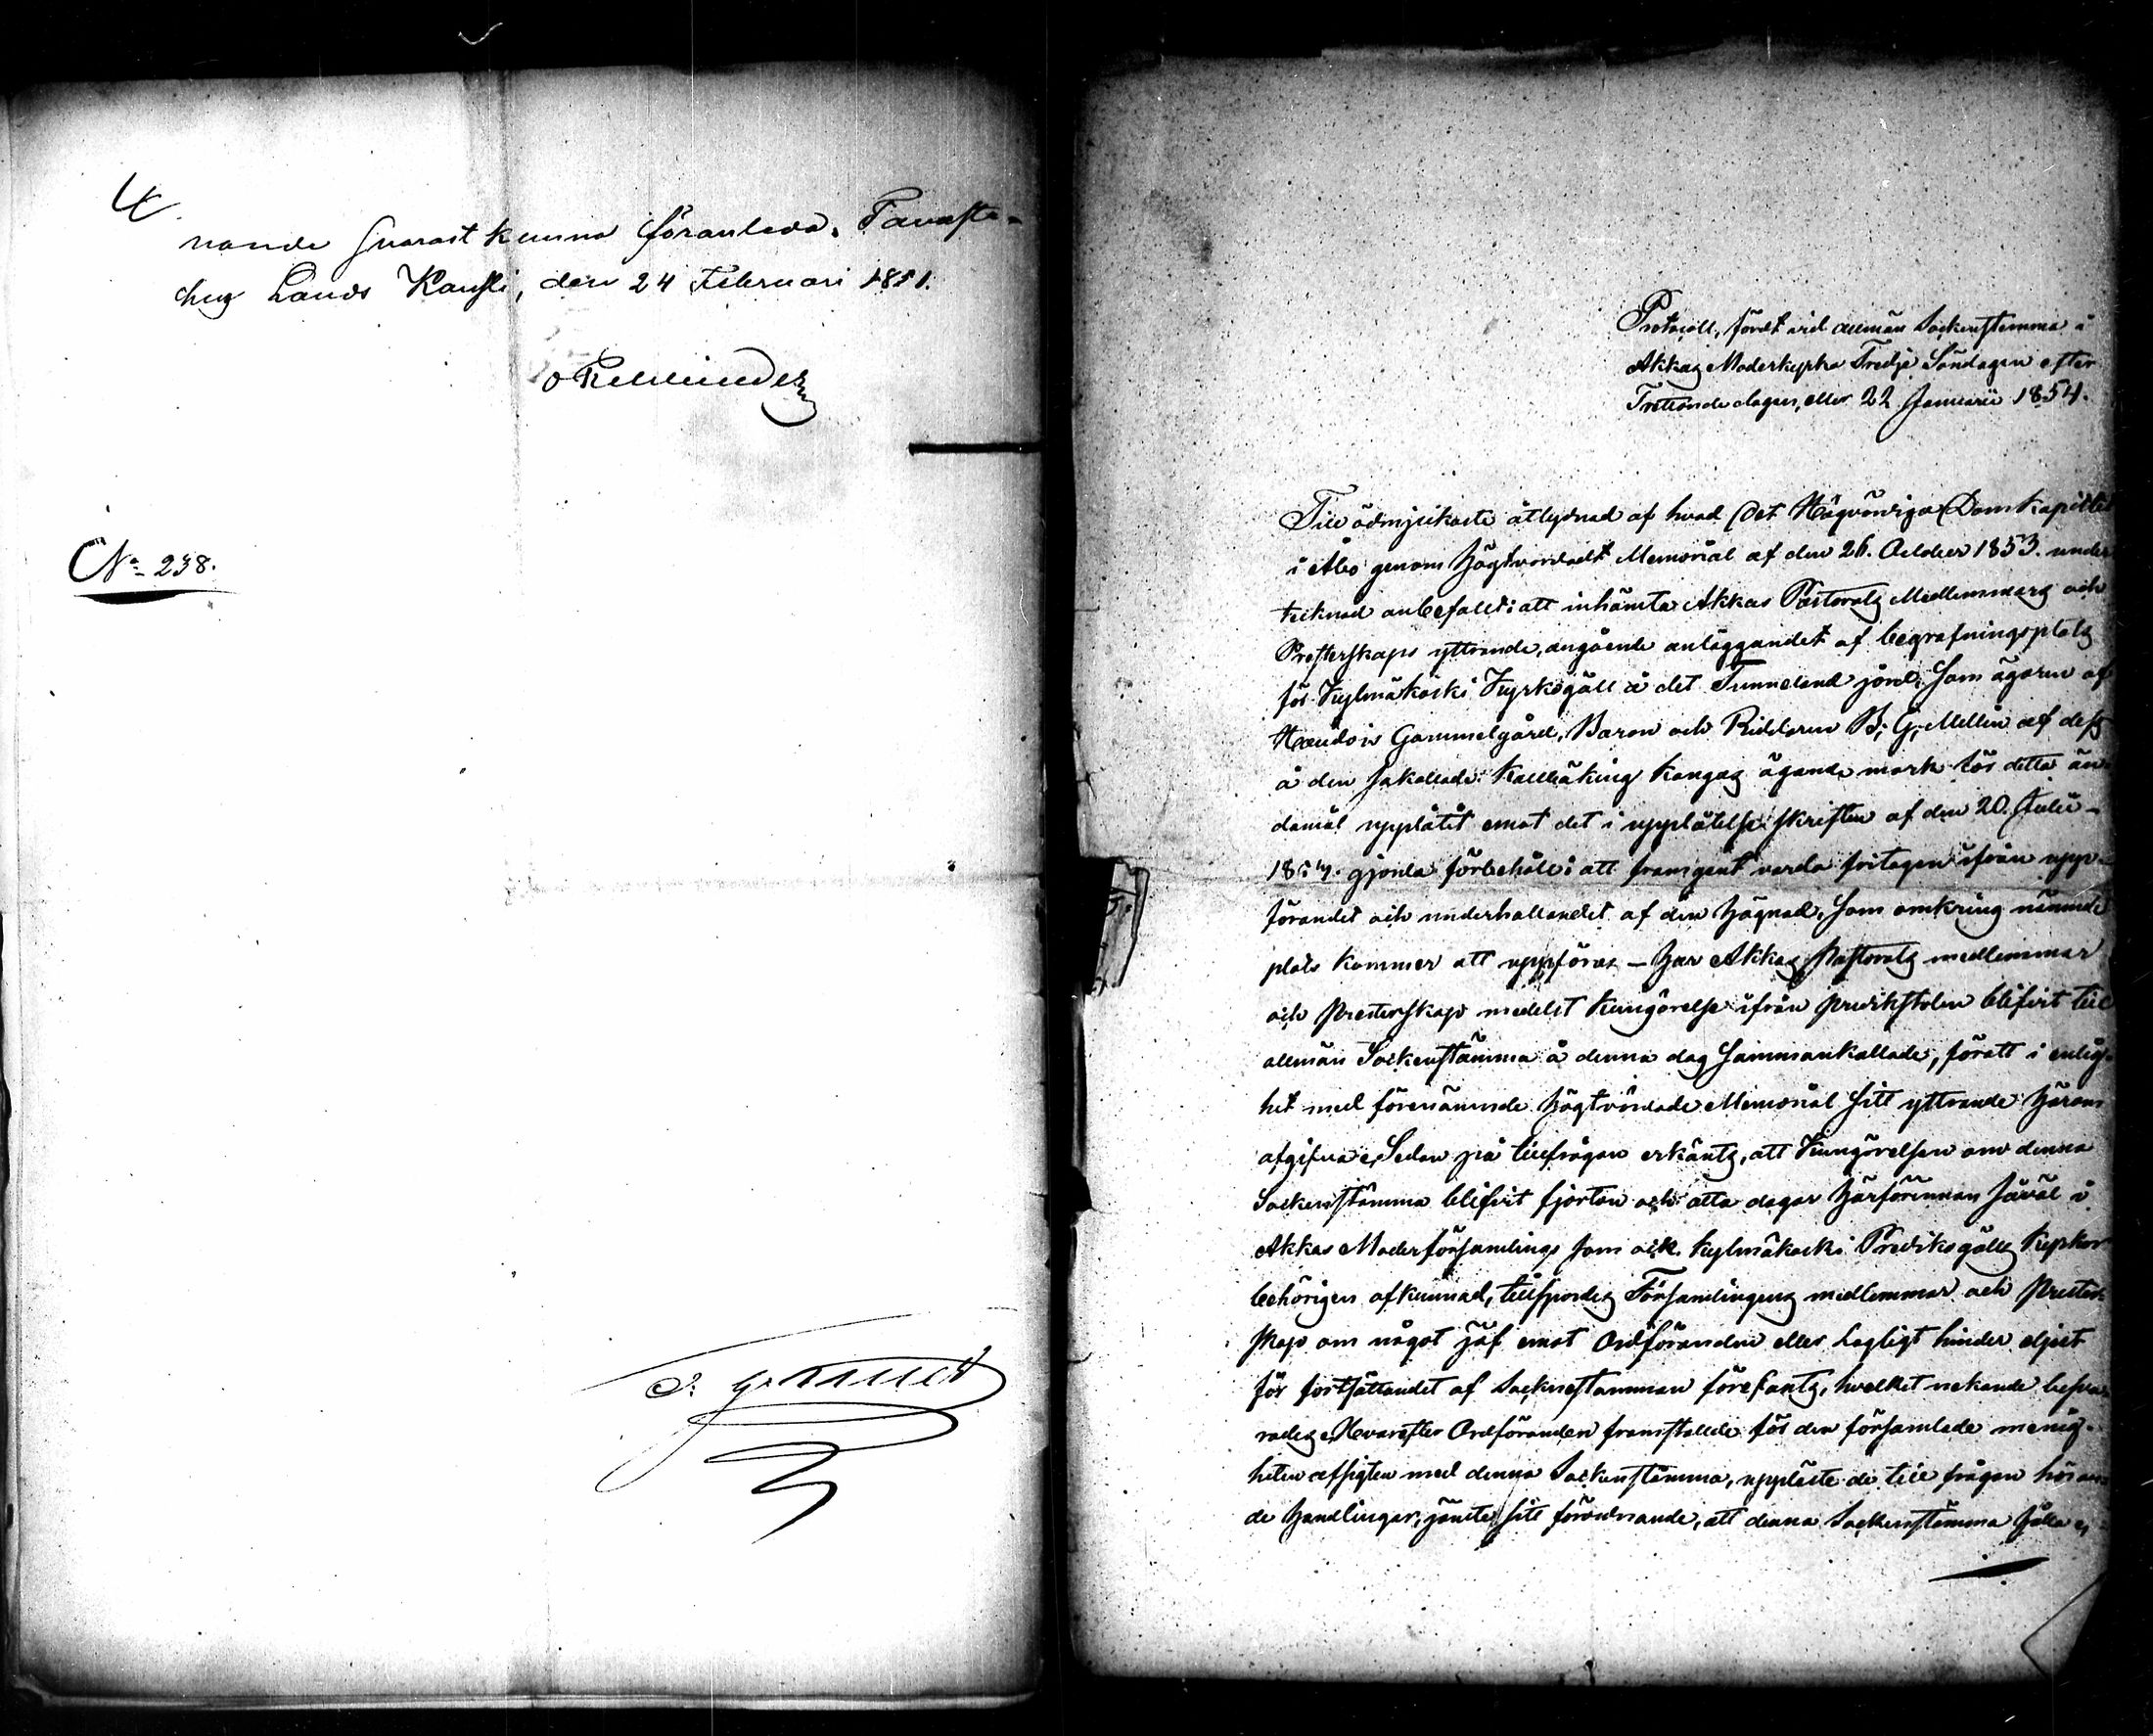 4.
nande snarast kunna föranleda. Tavaste-
hus Lands Kansli, den 24 Februari 1851.
O Rehbinder
No 238.
Protocoll, fördt vid allmän Sockenstemma i
Akkas Moderkyrka Tredje Söndagen efter
Trettondedagen, eller 22 Januarii 1854.
Till ödmjukaste åtlydnad af hvad Det Högvördiga Domkapitlet
i Åbo genom högtvördadt Memorial af den 26. October 1853. under
tecknad anbefalt: att inhämta Akkas Pastorats Medlemmars och
Presterskaps yttrande, angående anläggandet af begrafningsplats
för Kylmäkoski Kyrkogäll å det Tunneland jord, som ägaren af
Gammelgård, Baron och Riddaren B. G. Mellin af dess
å den så kallade Kangas ägande mark för detta än-
damål upplåtit emot det i upplåtelse skriften af den 20. Julii
gjorda förbehåll: att framgent varda fritagen ifrån upp-
förandet och underhållandet af den hägnad, som omkring nämnde
plats kommer att uppföras – har Akkas Pastorats medlemmar
och Presterskap medelst Kungörelse ifrån predikstolen blifvit till
allmän Sockenstämma å denna dag sammankallade, föratt i enlig-
het med förenämnde högtvördade Memorial sitt yttrande härom
afgifva. Sedan på tillfrågan erkänts, att Kungörelsen om denna
Sockenstämma blifvit fjorton och åtta dagar härförinnan såväl i
Akkas Moderförsamlings som ock Kylmäkoski Predikogälls Kyrkor
behörigen afkunnad, tillspordes Församlingens medlemmar och Prester-
skap om något jäf emot Ordföranden eller lagligt hinder eljest
för fortsättandet af Sockenstämman förefants, hvilket nekande besva-
rades. Hvarefter Ordföranden framstallde för den församlade menig-
heten afsigten med denna Sockenstämma, uppläste de till frågan höran-
de handlingar, jämte sitt förordnande, att denna Sockenstämma hålla,